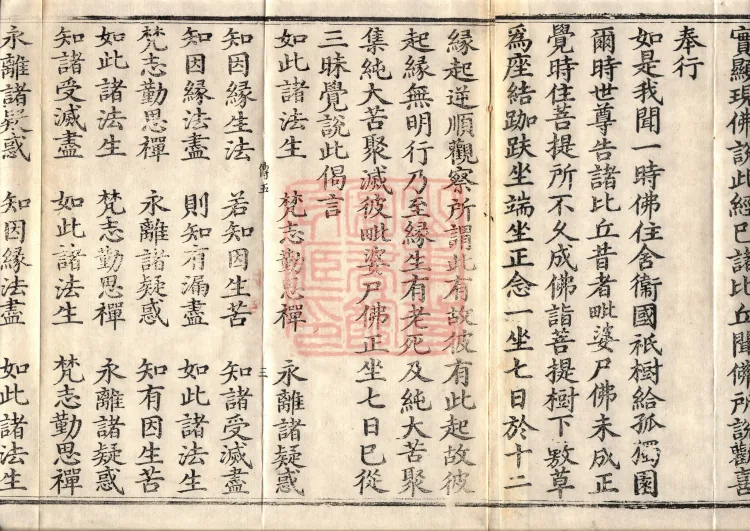 實顯現佛說此經已諸比丘聞佛所說歡喜
奉行
如是我聞一時佛住舍衞國祇樹給孤獨園
爾時世尊告諸比丘昔者毗婆尸佛未成正
覺時住菩提所不久成佛詣菩提樹下敷草
爲座結跏趺坐端坐正念一坐七日於十二
緣起逆順觀察所謂此有故彼有此起故彼
起緣無明行乃至緣生有老死及純大苦聚
集純大苦聚滅彼毗婆尸佛正坐七日已從
三昧覺說此偈言
如此諸法生 梵志勤思禪 永離諸疑惑
傳五 三
知因緣生法 若知因生苦 知諸受滅盡
知因緣法盡 則知有漏盡 如此諸法生
梵志勤思禪 永離諸疑惑 知有因生苦
如此諸法生 梵志勤思禪 永離諸疑惑
知諸受滅盡 如此諸法生 梵志勤思禪
永離諸疑惑 知因緣法盡 如此諸法生